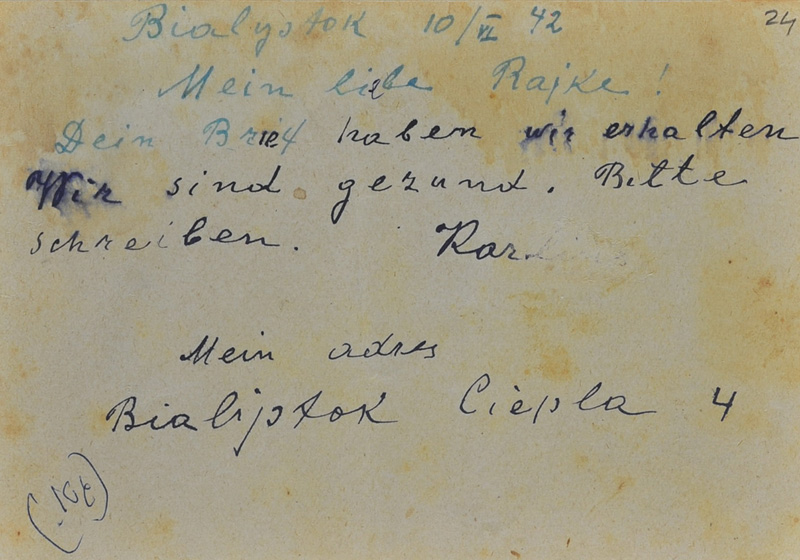 Bialystok 10/VI 42
24
Mein liebe Rajke!
Dein Brief haben wir erhalten
Wir sind gezund. Bitte
schreiben.
Mein adres
Bialystok Ciepla 4